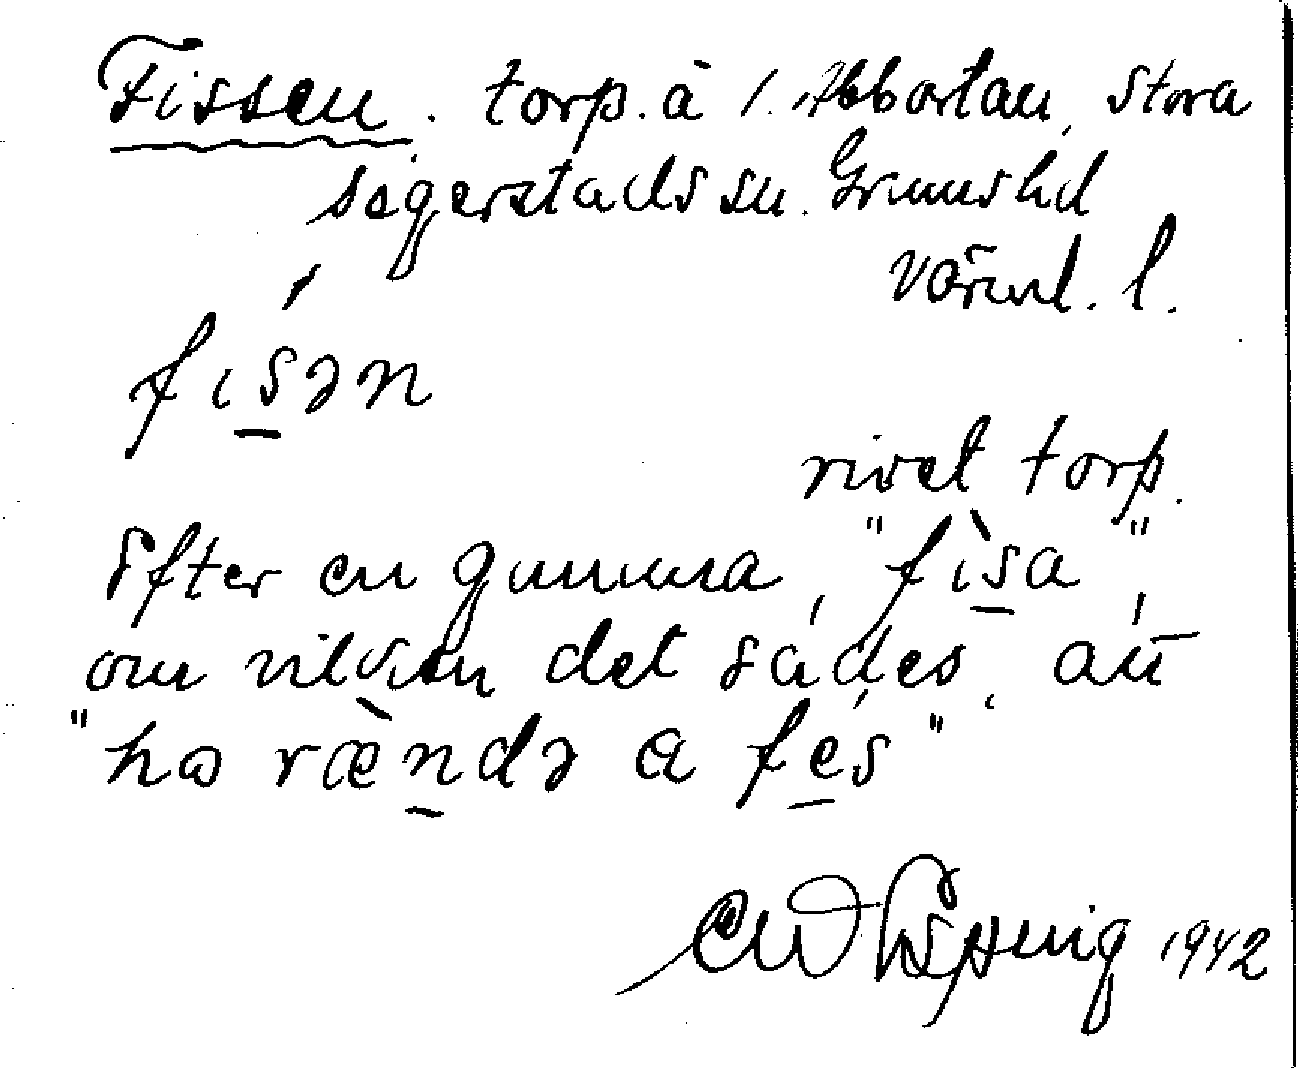 Fissen. torp. å /. Abbortan, Stora
Segerstads sn. Grums hd
Värml. l.
fisən
rivet torp.
Efter en gumma, "fìsa",
om vilken det sades, att
"ho rændə a fes"
1942